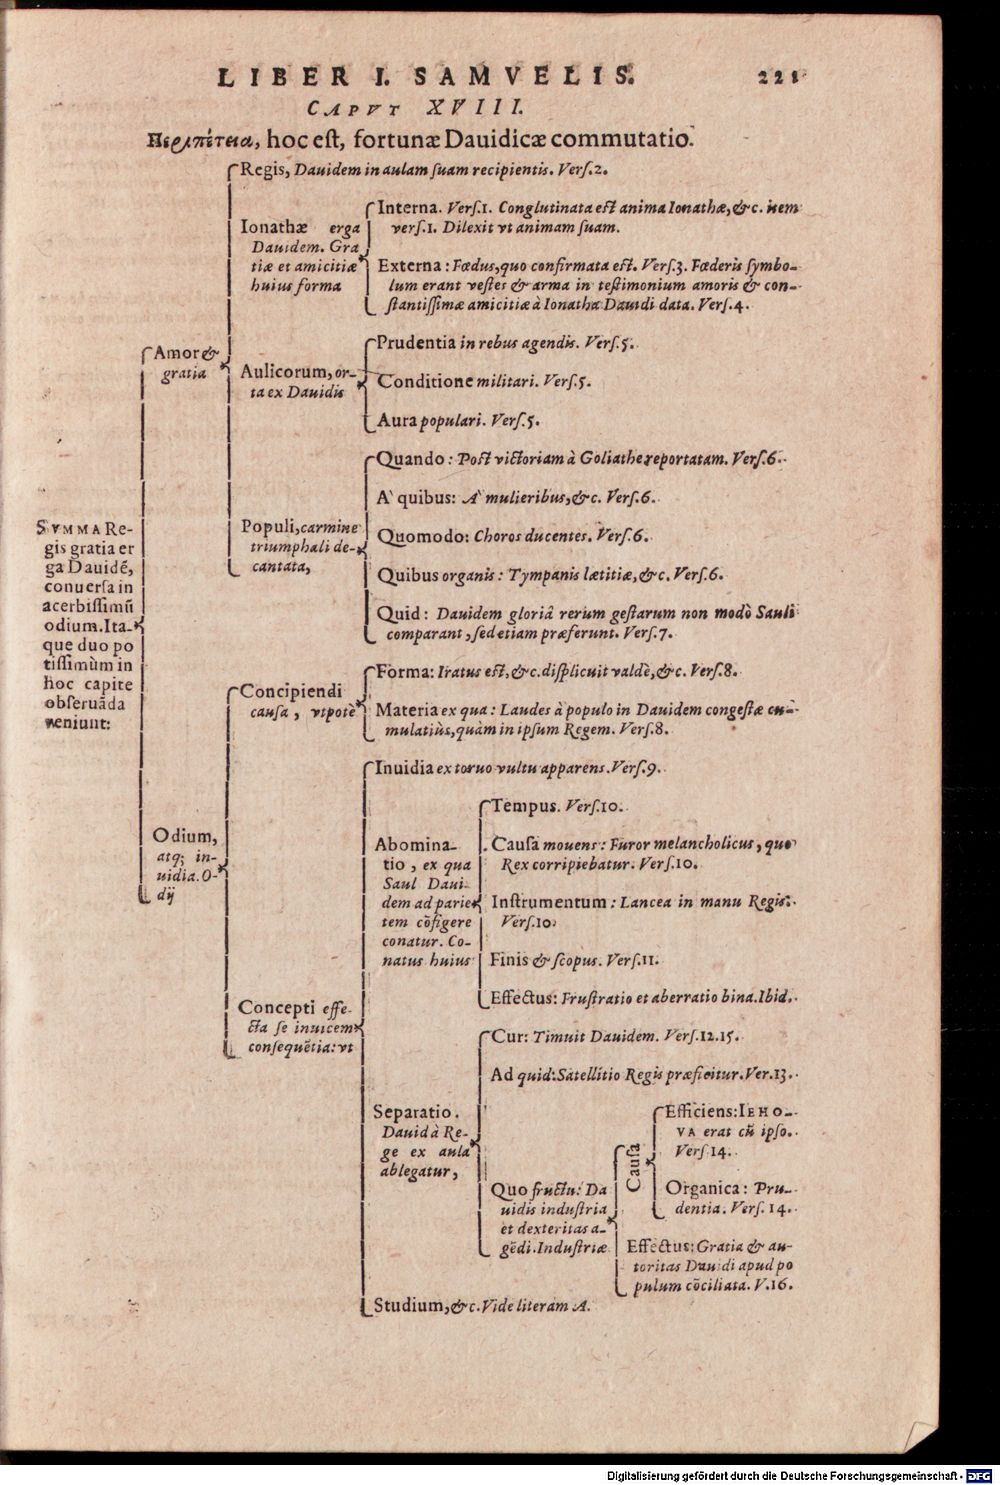 LIBER I. SAMVELIS. 221
CAPVT XVIII.
Περιπέτεια, hoc est, fortunæ Dauidicæ commutatio.
SVMMA Re-
gis gratia er
ga Dauidẽ,
conuersa in
acerbissimũ
odium. Ita-
que duo po
tissimùm in
hoc capite
obseruãda
veniunt:
Amor &
gratia
Regis, Dauidem in aulam suam recipientis. Vers.2.
Ionathæ erga
Dauidem. Gra
tiæ et amicitiæ
huius forma
Interna. Vers.1. Conglutinata est anima Ionathæ, &c. item
vers.1. Dilexit vt animam suam.
Externa: Fœdus, quo confirmata est. Vers.3. Fœderis symbo-
lum erant vestes & arma in testimonium amoris & con-
stantissimæ amicitiæ à Ionatha Dauidi data. Vers.4.
Aulicorum, or-
ta ex Dauidis
Prudentia in rebus agendis. Vers.5.
Conditione militari. Vers.5.
Aura populari. Vers.5.
Populi, carmine
triumphali de-
cantata,
Quando: Post victoriam à Goliathe reportatam. Vers.6.
A` quibus: A` mulieribus, &c. Vers.6.
Quomodo: Choros ducentes. Vers.6.
Quibus organis: Tympanis lætitiæ, &c. Vers.6.
Quid: Dauidem gloriâ rerum gestarum non modò Sauli
comparant, sed etiam præferunt. Vers.7.
Odium,
atq; in-
uidia. O-
dij
Concipiendi
causa, vtpotè
Forma: Iratus est, &c. displicuit valdè, &c. Vers.8.
Materia ex qua: Laudes à populo in Dauidem congestæ cu-
mulatiùs, quàm in ipsum Regem. Vers.8.
Concepti effe-
cta se inuicem
consequẽtia: vt
Inuidia ex toruo vultu apparens. Vers.9.
Abomina-
tio, ex qua
Saul Daui-
dem ad parie
tem cõfigere
conatur. Co-
natus huius
Tempus. Vers.10.
Causa mouens: Furor melancholicus, quo
Rex corripiebatur. Vers.10.
Instrumentum: Lancea in manu Regis.
Vers.10.
Finis & scopus. Vers.11.
Effectus: Frustratio et aberratio bina. Ibid.
Separatio.
Dauid à Re-
ge ex aula
ablegatur,
Cur: Timuit Dauidem. Vers.12.15.
Ad quid: Satellitio Regis præficitur. Ver.13.
Quo fructu: Da
uidis industria
et dexteritas a-
gẽdi. Industriæ
Causa
Efficiens: IEHO-
VA erat cũ ipso.
Vers 14.
Organica: Pru-
dentia. Vers. 14.
Effectus: Gratia & au-
toritas Dauidi apud po
pulum cõciliata. V.16.
Studium, &c. Vide literam A.
Digitalisierung gefördert durch die Deutsche Forschungsgemeinschaft - DFG